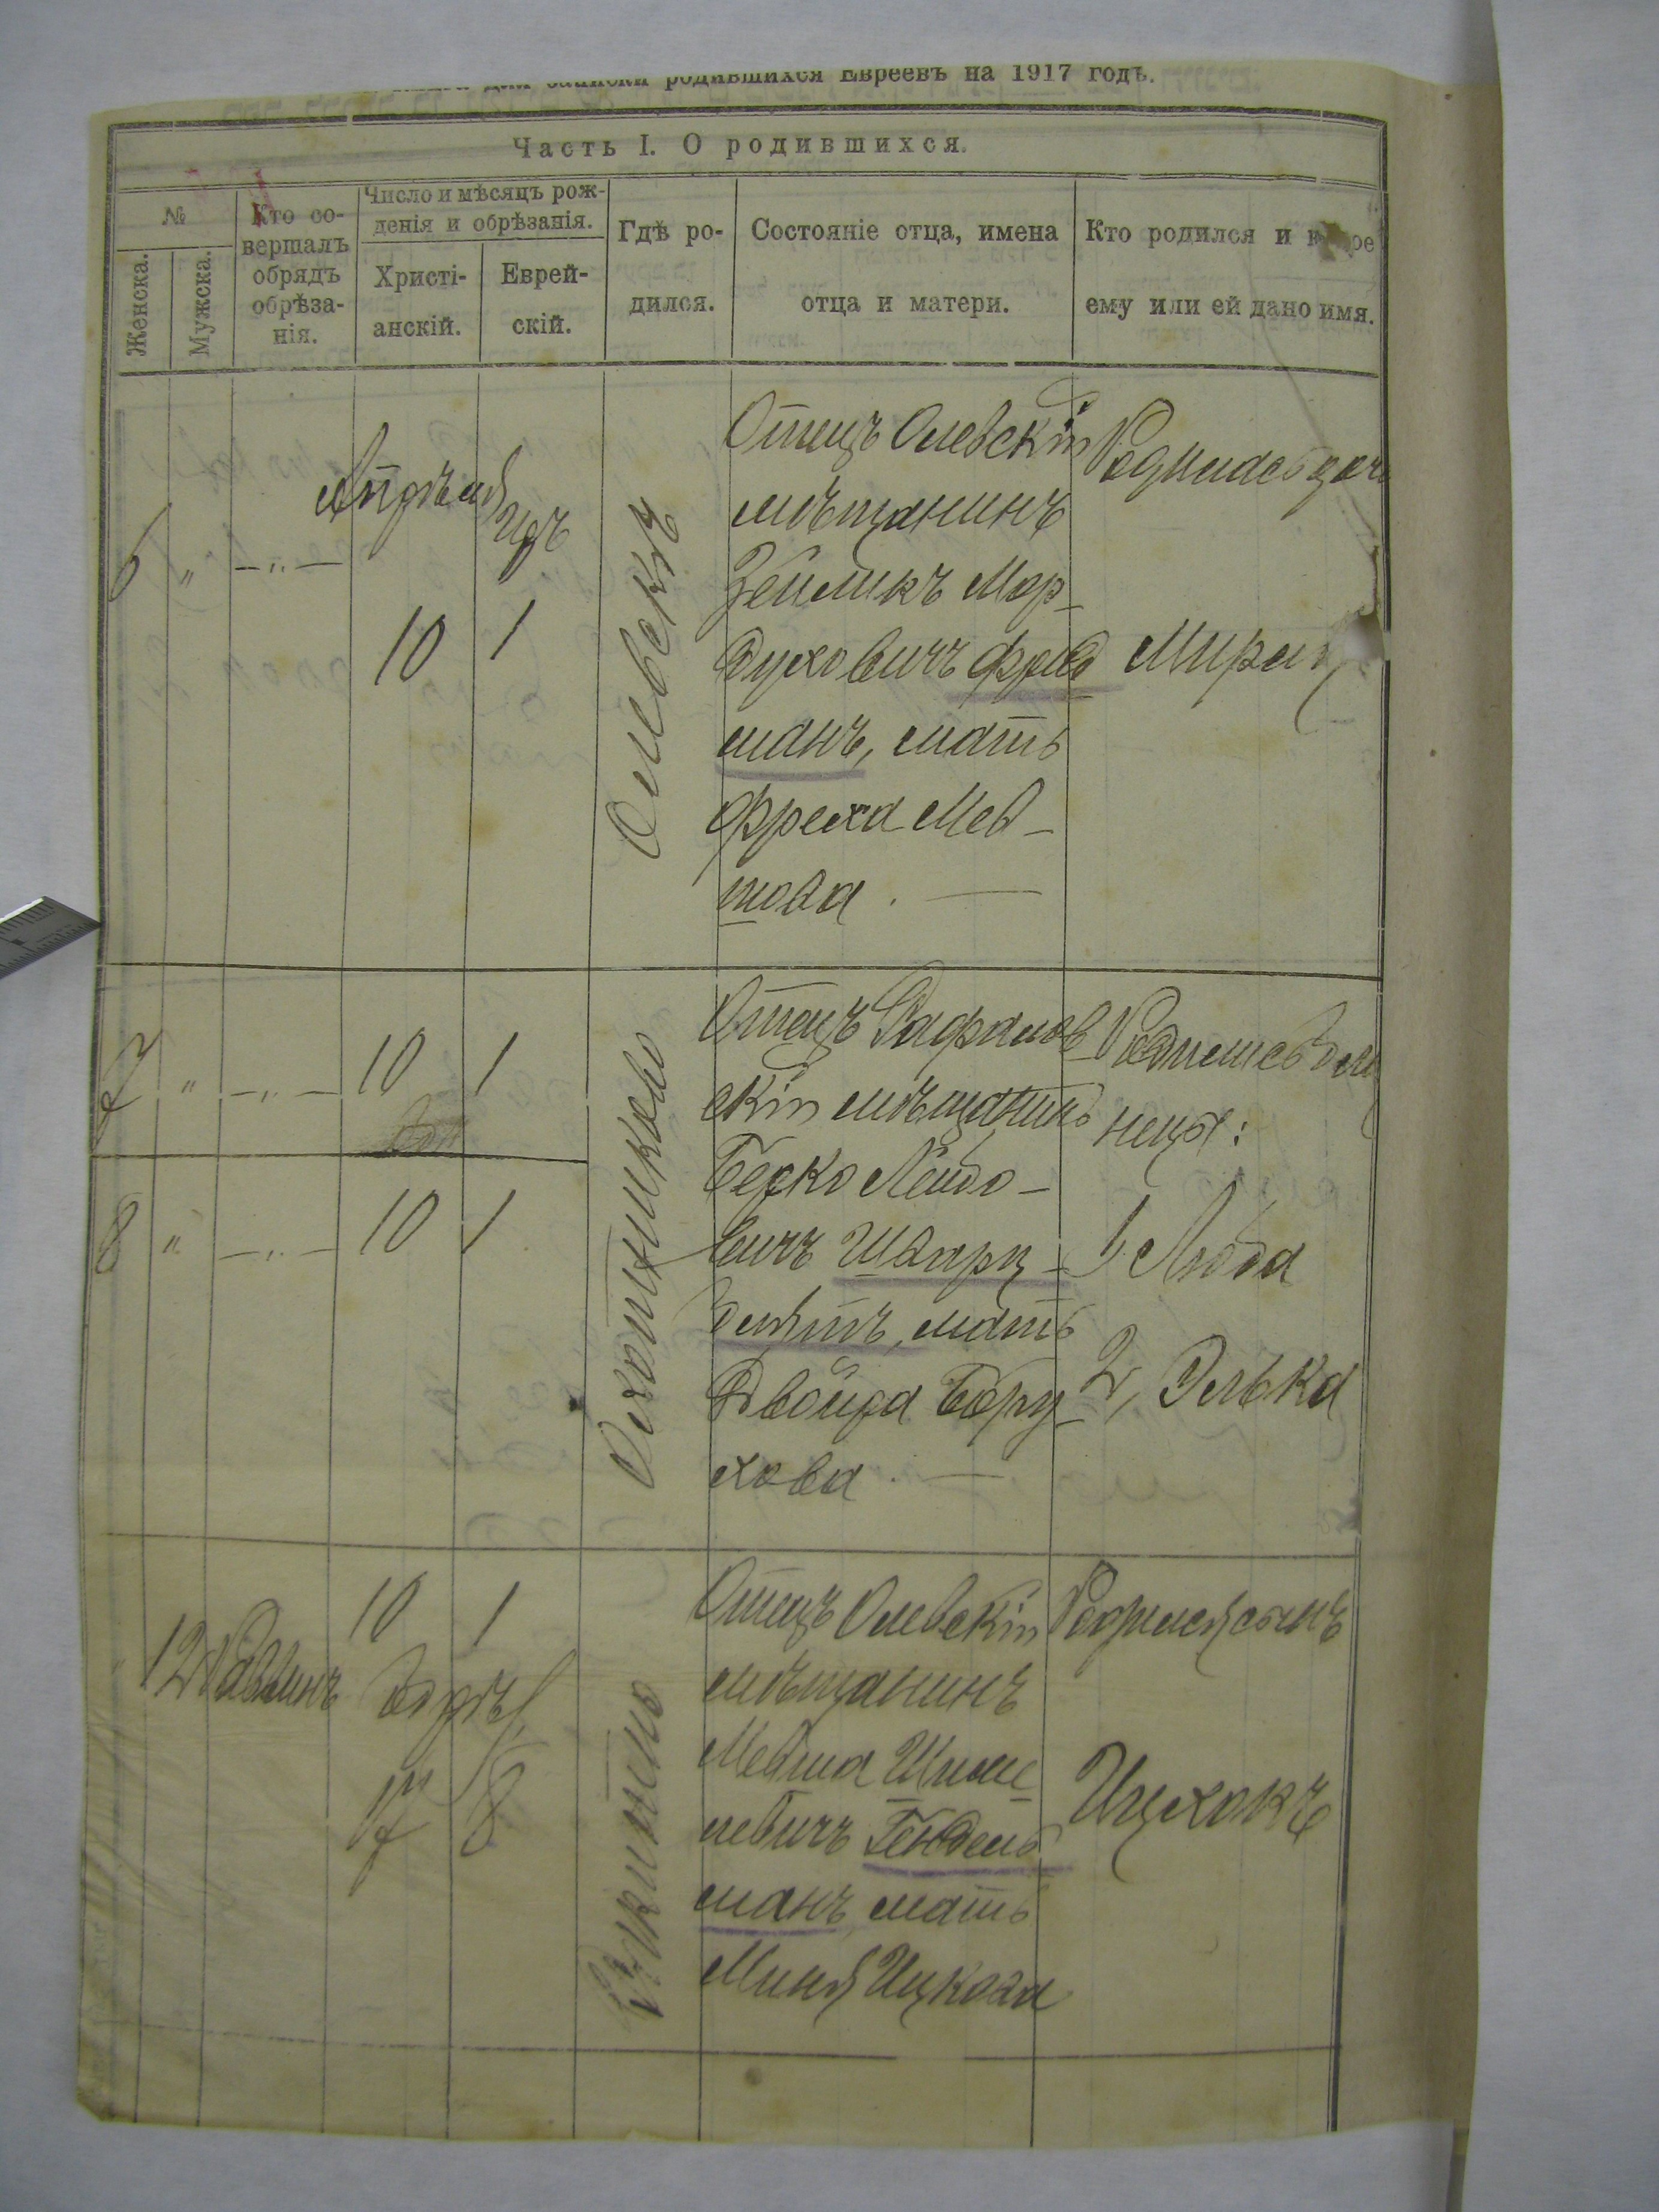 для записки родившихся Евреевъ на 1917 годъ.
Часть I. О родившихся.
№
Женска.
Мужска.
Кто со-
вершалъ
обрядъ
обрѣза-
нія.
Число и мѣсяцъ рож-
денія и обрѣзанія.
Христі-
анскій.
Еврей-
скій.
Гдѣ ро-
дился.
Состояніе отца, имена
отца и матери.
Кто родился и
ему или ей дано имя.
6 " —"—
Апрѣля
10
Иръ
1
Олевскъ
Отецъ Олевскій
мѣщанинъ
Зейликъ Мор-
духовичъ Фрид
манъ, мать
Фрейда Мев-
шова. —
Родилась дочь
7 " —"— 10 1
8 " —"— 10 1
Отецъ Рафалов-
скій мѣщанинъ
Берко Лейбо-
вичъ Шварц-
блатъ, мать
Двойра Бору-
хова. —
Родились близ
нецы:
1, Люба
2, Элька
12 Равинъ
10 1
обрѣз.
17 8
Отецъ Олевскій
мѣщанинъ
Мевша Шиме
левичъ Гендель
манъ мать
Миня Ицкова
Родился сынъ
Ицхокъ